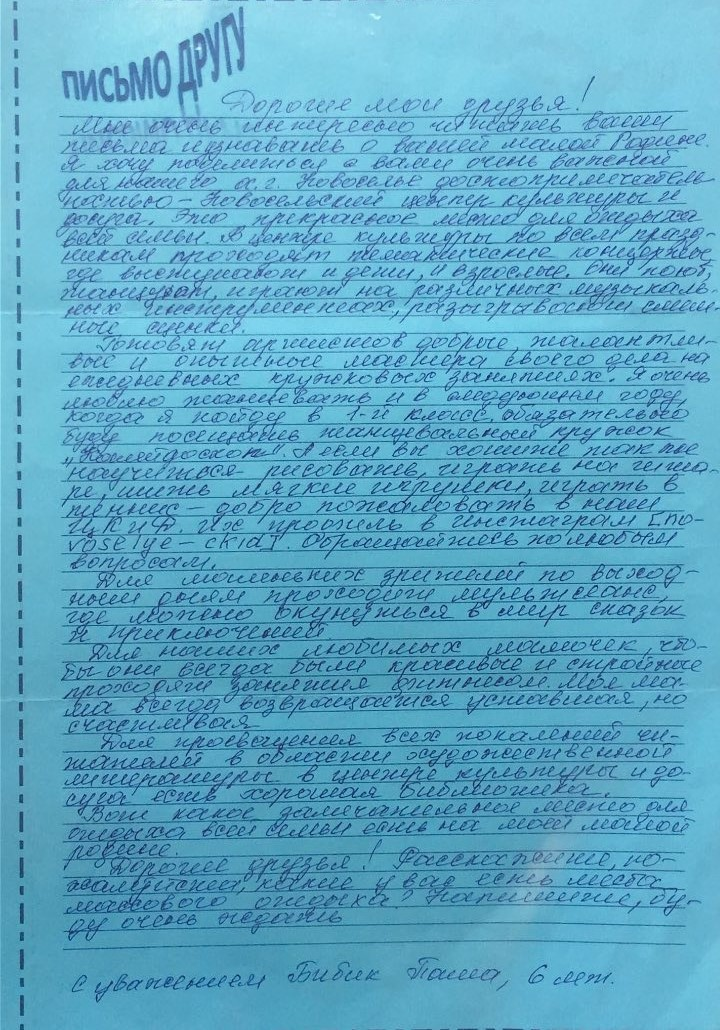 ПИСЬМО ДРУГУ
Дорогие мои друзья!
Мне очень интересно читать ваши
письма и узнавать о вашей малой Родине.
Я хочу поделиться с вами очень важной
для нашего а.г. Новоселье достопримечатель-
ностью – Новосельский центр культуры и
досуга. Это прекрасное место для отдыха
всей семьи. В центре культуры по всем празд-
никам проходят тематические концерты,
где выступают и дети, и взрослые. Они поют,
танцуют, играют на различных музыкаль-
ных инструментах, разыгрывают смеш-
ные сценки.
Готовят артистов добрые, талантли-
вые и опытные мастера своего дела на
ежедневных кружковых занятиях. Я очень
люблю танцевать и в следующем году,
когда я пойду в 1-й класс, обязательно
буду посещать танцевальный кружок
„Калейдоскоп". А если вы хотите также
научиться рисовать, играть на гита-
ре, шить мягкие игрушки, играть в
теннис – добро пожаловать в наш
ЦКиД. Их профиль в инстаграм [no-
voselye-ckid]. Обращайтесь по любым
вопросам.
Для маленьких зрителей по выход-
ным дням проходят мультсеанс,
где можно окунуться в мир сказок
и приключений.
Для наших любимых мамочек, что-
бы они всегда были красивые и стройные
проходят занятия фитнесом. Моя ма-
ма всегда возвращается уставшая, но
счастливая.
Для просвещения всех поколений чи-
тателей в области художественной
литературы в центре культуры и до-
суга есть хорошая библиотека.
Вот какое замечательное место для
отдыха всей семьи есть на моей малой
родине.
Дорогие друзья! Расскажите, по-
жалуйста, какие у вас есть места
массового отдыха? Напишите, бу-
ду очень ждать
С уважением Бибик Паша, 6 лет.